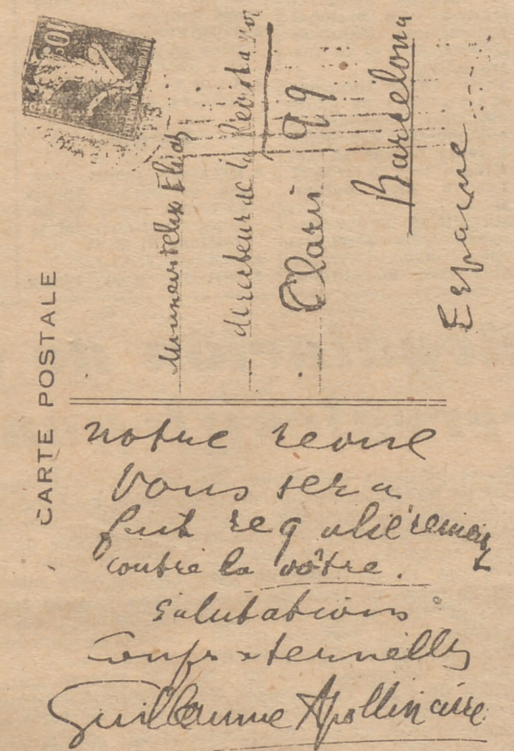 CARTE POSTALE
10
Monsieur Felix Elias
directeur de la Revista nov
Claris 99
Barcelona
Espagne
notre revue
vous sera
fait regulièrement
contre la vôtre.
salutations
confraternelles
Guillaume Apollinaire